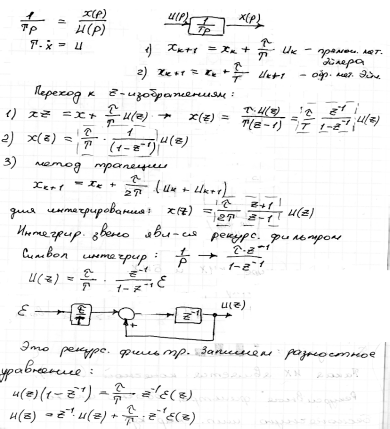 1/Tp = x(p)/U(p)
U(p) 1/Tp X(p)
T·ẋ = u
1) x_{k+1} = x_k + τ/T · u_k – прямой мет. Эйлера
2) x_{k+1} = x_k + τ/T u_{k+1} – обр. мет. Эйл
Переход к z-изображениям:
1) xz = x + τ/T u(z) → x(z) = τ·u(z)/T(z-1) = τ/T z⁻¹/1-z⁻¹ u(z)
2) x(z) = τ/T · 1/(1-z⁻¹) u(z)
3) метод трапеции
x_{k+1} = x_k + τ/2T (u_k + u_{k+1})
для интегрирования: x(z) = τ/2T · z+1/z-1 u(z)
Интегрир. звено явл-ся рекурс. фильтром
Символ интегрир: 1/p → τ·z⁻¹/1-z⁻¹
U(z) = τ/T · z⁻¹/1-z⁻¹ ε
ε τ/T + z⁻¹ U(z)
Это рекурс. фильтр. Запишем разностное
уравнение:
u(z)(1-z⁻¹) = τ/T · z⁻¹ε(z)
u(z) = z⁻¹·u(z) + τ/T · z⁻¹ε(z)